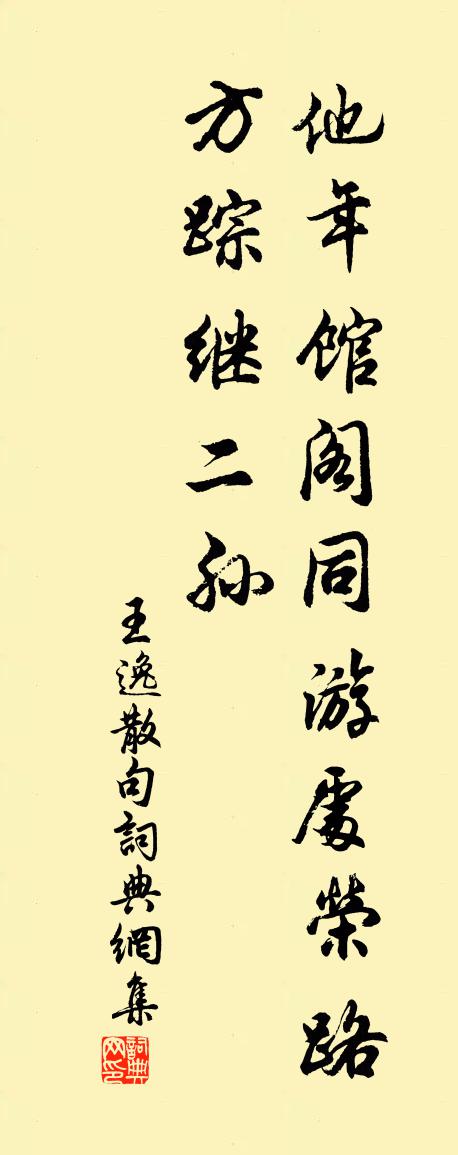 他年館阁同游處榮路
方踪继二孙
王逸散句詞典網集
詞典网印